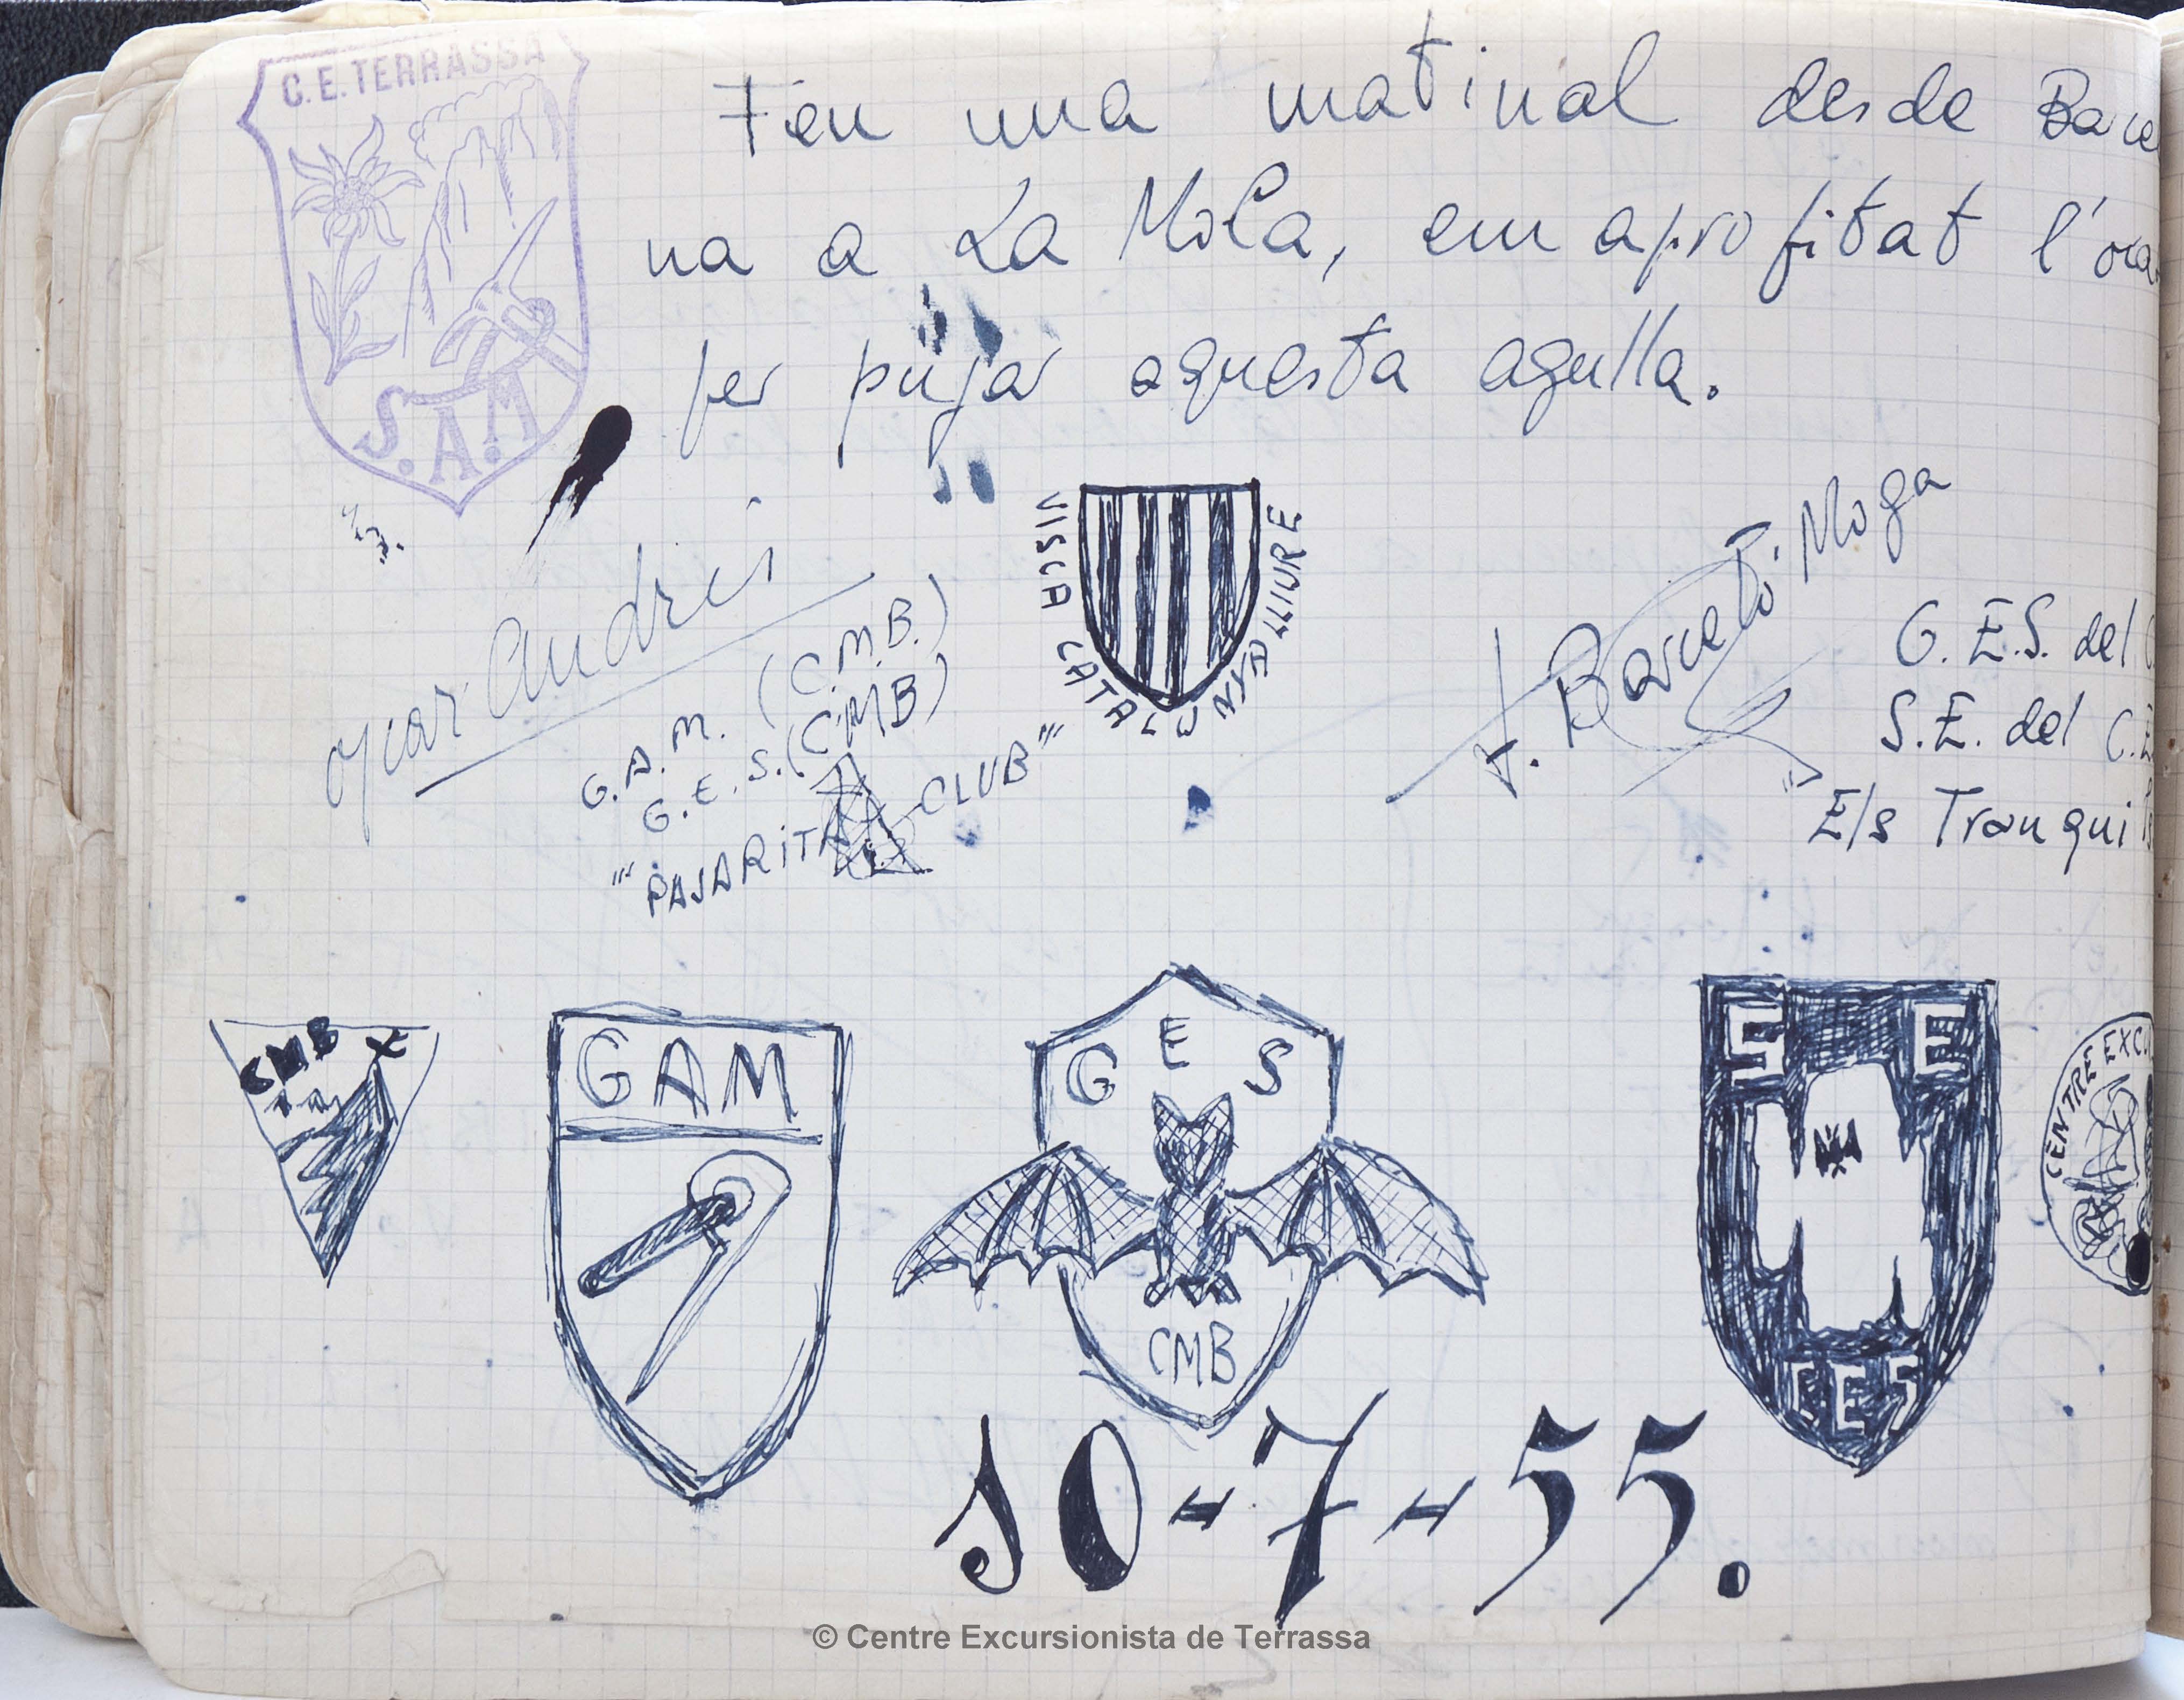 C.E. TERRASSA
S.A.M
Fen una matinal desde Barce
na a La Mola, em aprofitat l'oca
per pujar aquesta agulla.
VISCA CATALUNYA LLIURE
Oscar Andres
G.A.M. (C.M.B.)
G.E.S. (CMB)
"PAJARITA CLUB"
J. Barceló. Moga
G.E.S. del
S.E. del C.E
"Els Tranqui
CMB
GAM
G E S
CMB
S E
C E S
CENTRE EXCU
10-7-55.
© Centre Excursionista de Terrassa